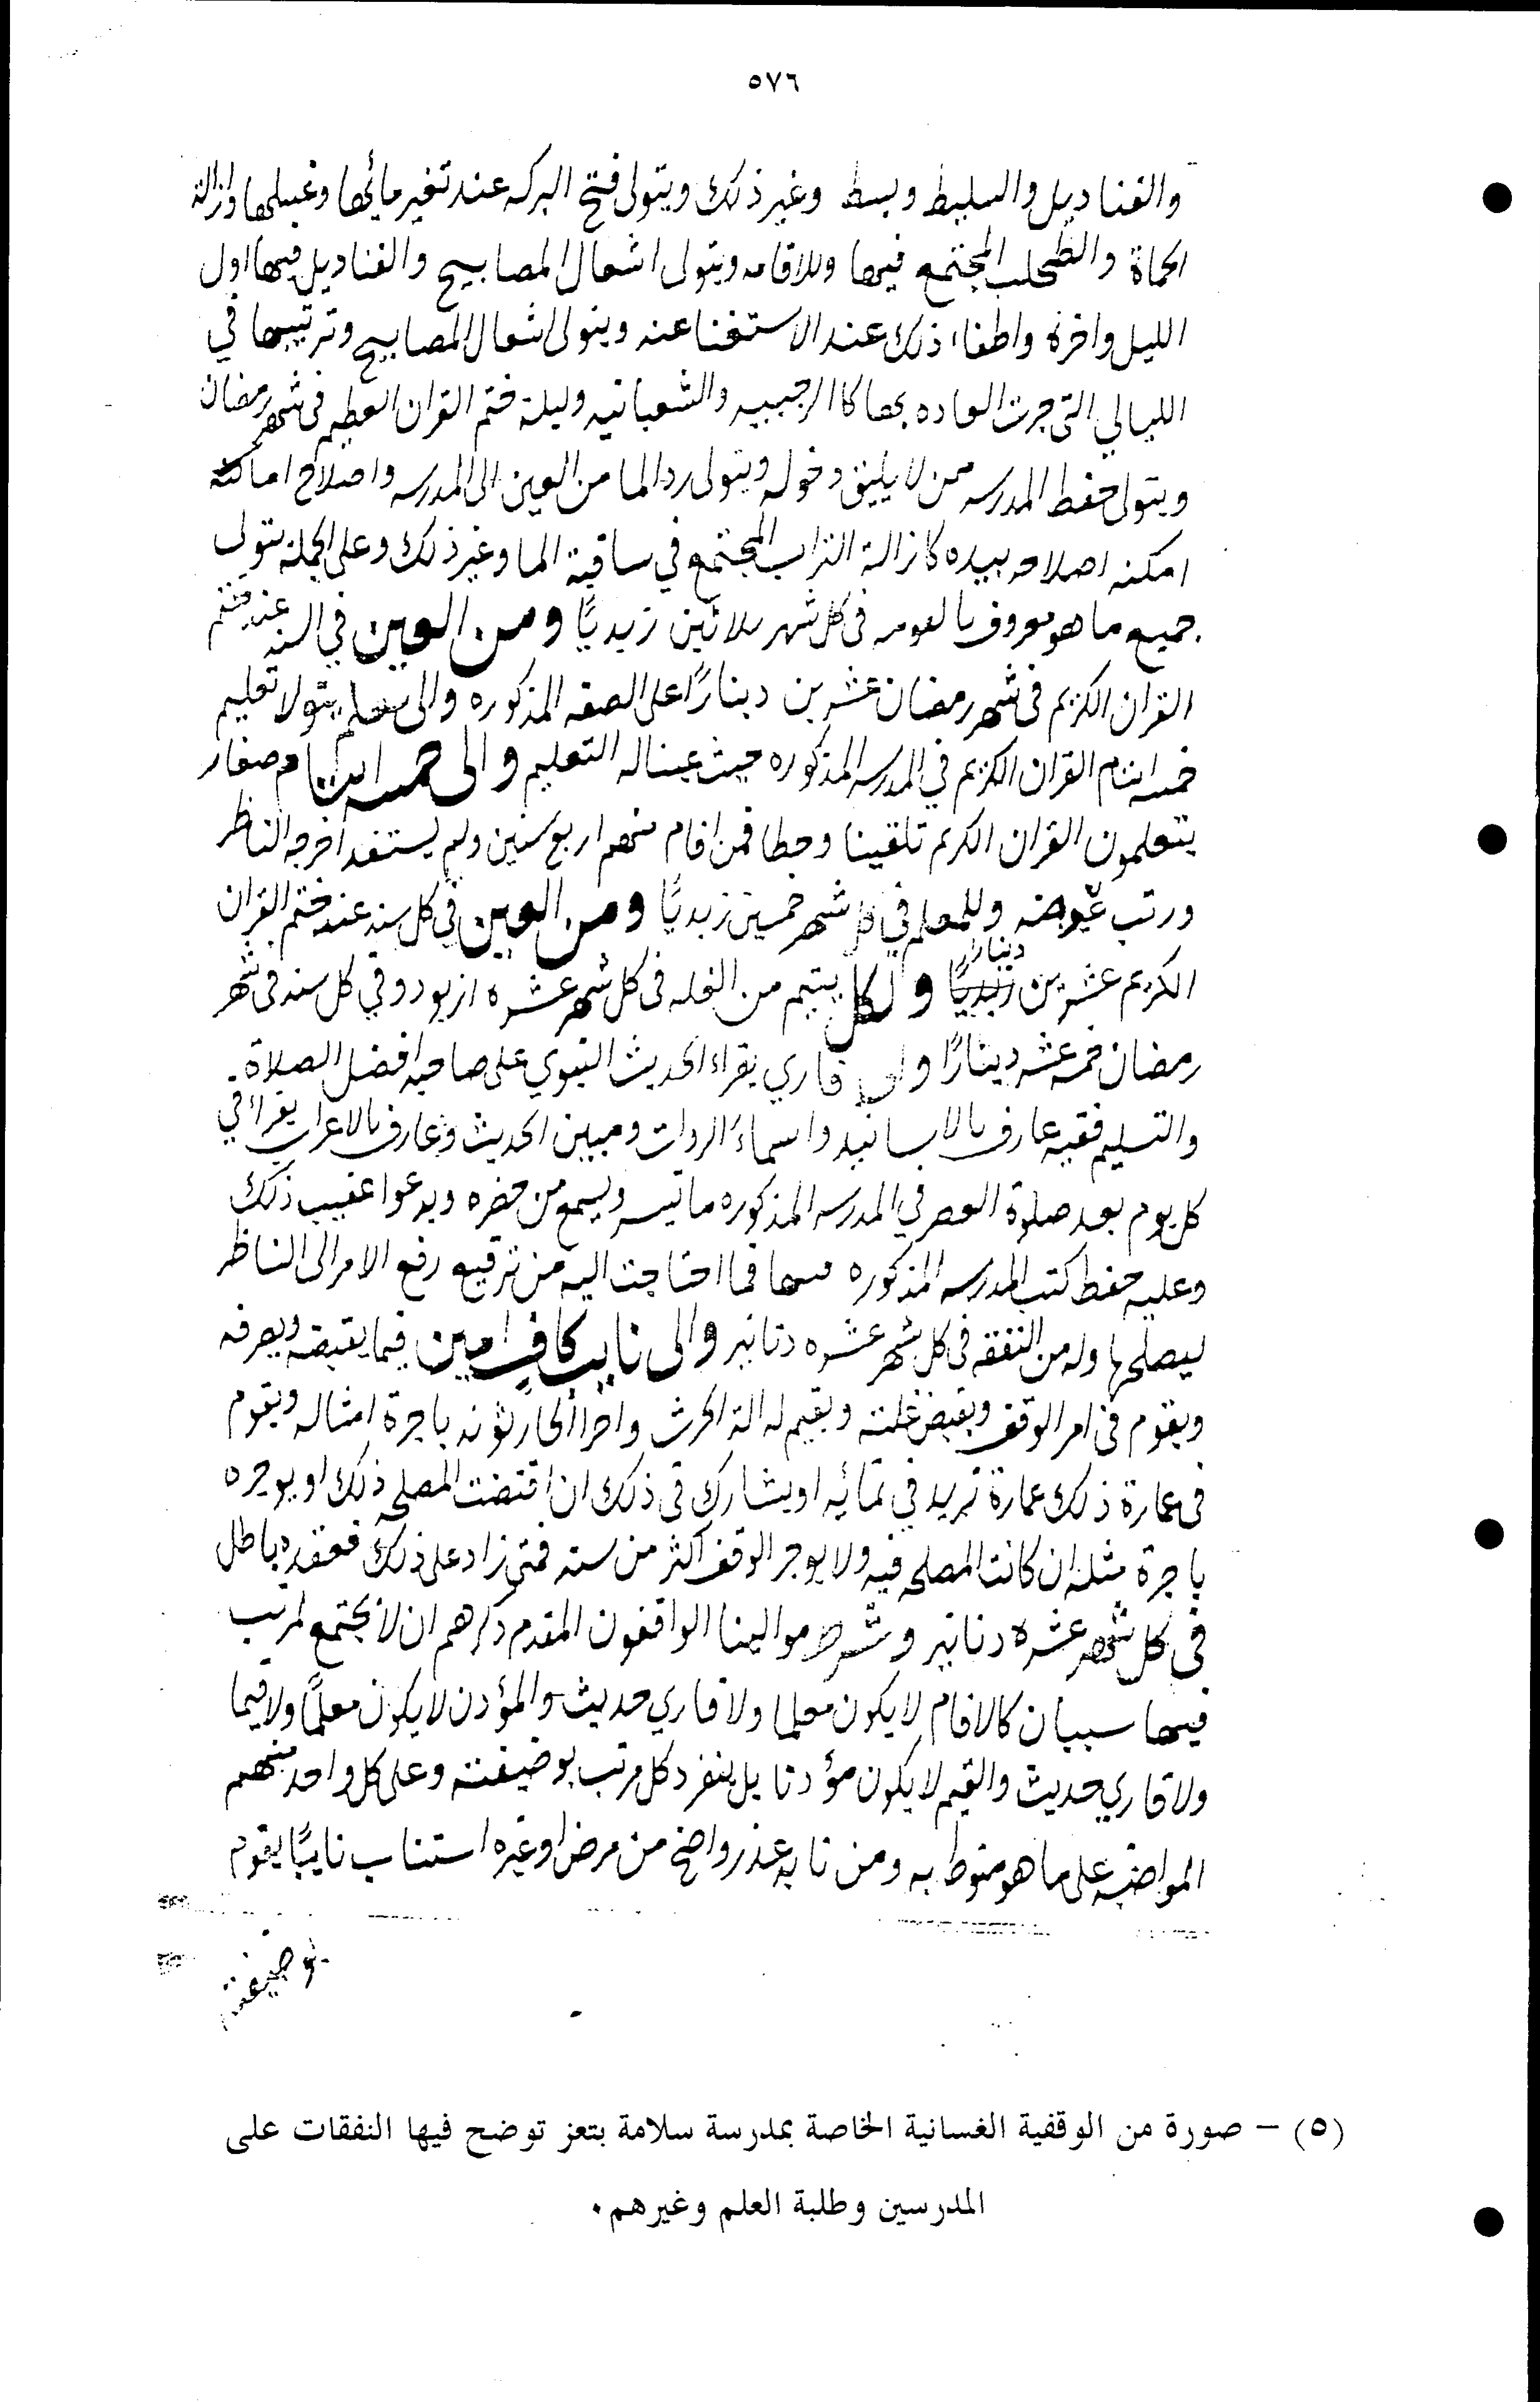 ٥٧٦
والقناديل والسليط وبسط وغير ذلك ويتولى فتح البركه عند تغير مائها وغسلها وازالة
الحماة والطحلب المجتمع فيها وللاقامه ويتولى اشعال المصابيح والقناديل فيها اول
الليل واخره واطفاء ذلك عند الاستغنا عنه ويتولى اشعال المصابيح وترتيبها في
الليالي التي جرت العاده بها كا الرجبيه والشعبانيه وليلة ختم القران العظيم في شهر رمضان
ويتولى حفظ المدرسه ممن لا يليق دخوله ويتولى رد الما من العين الى المدرسه واصلاح اماكنه
امكنه اصلاحه بيده كازالة التراب المجتمع في ساقية الما وغير ذلك وعلى الجملة يتولى
جميع ما هو معروف بالقومه في كل شهر ثلاثين زبديًا ومن العين في السنه عند ختم
القران الكريم في شهر رمضان عشرين دينارًا على الصفه المذكوره والى معلم يتولا تعليم
خمسه ايتام القران الكريم في المدرسه المذكوره حيث عيناله التعليم والى خمسه ايتام صغار
يتعلمون القران الكريم تلقينا وخطا فمن اقام منهم اربع سنين ولم يستفد اخرجه الناظر
ورتب عوضه وللمعلم في كل شهر خمسين زبديًا ومن العين في كل سنه عند ختم القران
الكريم عشرين زبديًا دينارا ولكل يتيم من الغله في كل شهر عشره ازبود وفي كل سنه في شهر
رمضان خمسة عشر دينارًا والى قاري يقراء الحديث النبوي على صاحبه افضل الصلاة
والتسليم فقيه عارف بالاسانيد واسماء الروات ومبين الحديث وعارف بالاعراب يقرا في
كل يوم بعد صلوة العصر في المدرسه المذكوره ما تيسر ويسمع من حضره ويدعوا عقيب ذلك
وعليه حفظ كتب المدرسه المذكوره مهما فما احتاجت اليه من ترقيع رفع الامر الى الناظر
ليصلحها وله من النفقه في كل شهر عشره دنانير والى نايب كافٍ امين فيما يقبضه ويصرفه
ويقوم في امر الوقف ويقبض غلته ويقيم له الة الحرث واجرا الحارثون باجرة امثاله ويقوم
في عمارة ذلك عمارة تزيد في نمائه او يشارك في ذلك ان اقتضت المصلحه ذلك او يوجره
باجرة مثله ان كانت المصلحه فيه ولا يوجر الوقف اكثر من سنه فمتى زاد على ذلك فعقده باطل
في كل شهر عشره دنانير وشرط موالينا الواقفون المقدم ذكرهم ان لا يجتمع لمرتب
فيها سببان كالامام لا يكون معلما ولا قاري حديث والمؤذن لا يكون معلمًا ولا قيما
ولا قاري حديث والقيم لا يكون مؤذنا بل ينفرد كل مرتب بوضيفته وعلى كل واحد منهم
المواضبه على ما هو منوط به ومن نابه عذر واضح من مرض او غيره استناب نايبًا يقوم
بوضيفته
(٥) – صورة من الوقفية الغسانية الخاصة بمدرسة سلامة بتعز توضح فيها النفقات على
المدرسين وطلبة العلم وغيرهم.